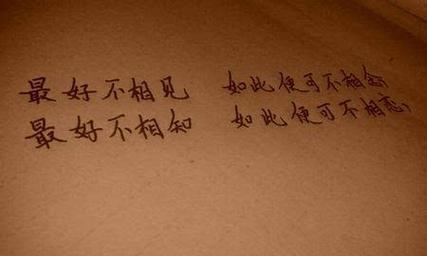 最好不相见 如此便可不相念
最好不相知 如此便可不相恋、